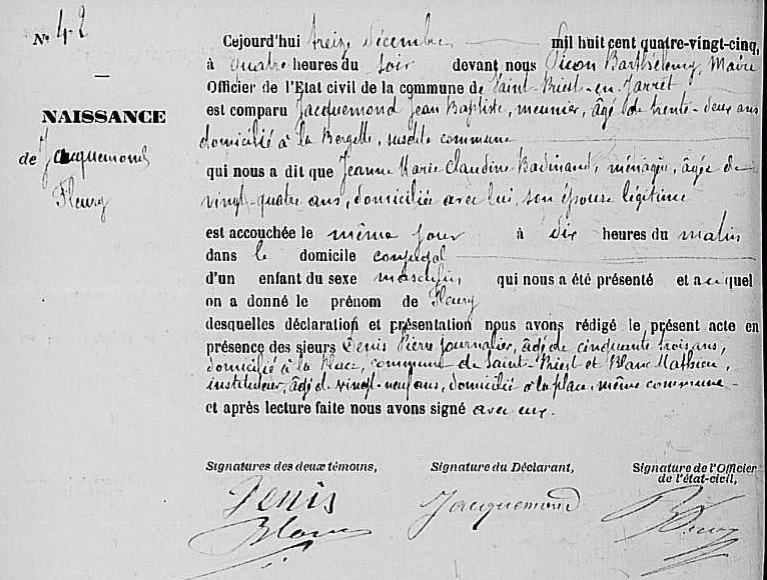 N° 42
NAISSANCE
de Jacquemond
Fleury
Cejourd'hui treize Décembre mil huit cent quatre-vingt-cinq,
à quatre heures du soir devant nous Picon Barthélemy, Maire
Officier de l'Etat civil de la commune de Saint-Priest-en-Jarret
est comparu Jacquemond Jean Baptiste, meunier, âgé de trente-deux ans
domicilié à la Bergette, susdite commune
qui nous a dit que Jeanne Marie Claudine Badinand, ménagère, âgée de
vingt-quatre ans, domiciliée avec lui, son épouse légitime
est accouchée le même jour à dix heures du matin
dans le domicile conjugal
d'un enfant du sexe masculin qui nous a été présenté et auquel
on a donné le prénom de Fleury
desquelles déclaration et présentation nous avons rédigé le présent acte en
présence des sieurs Denis Pierre journalier, âgé de cinquante trois ans,
domicilié à la Place, commune de Saint-Priest et Blanc Mathieu,
instituteur, âgé de vingt-neuf ans, domicilié à la place, même commune
et après lecture faite nous avons signé avec eux.
Signatures des deux témoins, Signature du Déclarant, Signature de l'Officier
de l'état-civil,
Denis
Blanc
Jacquemond